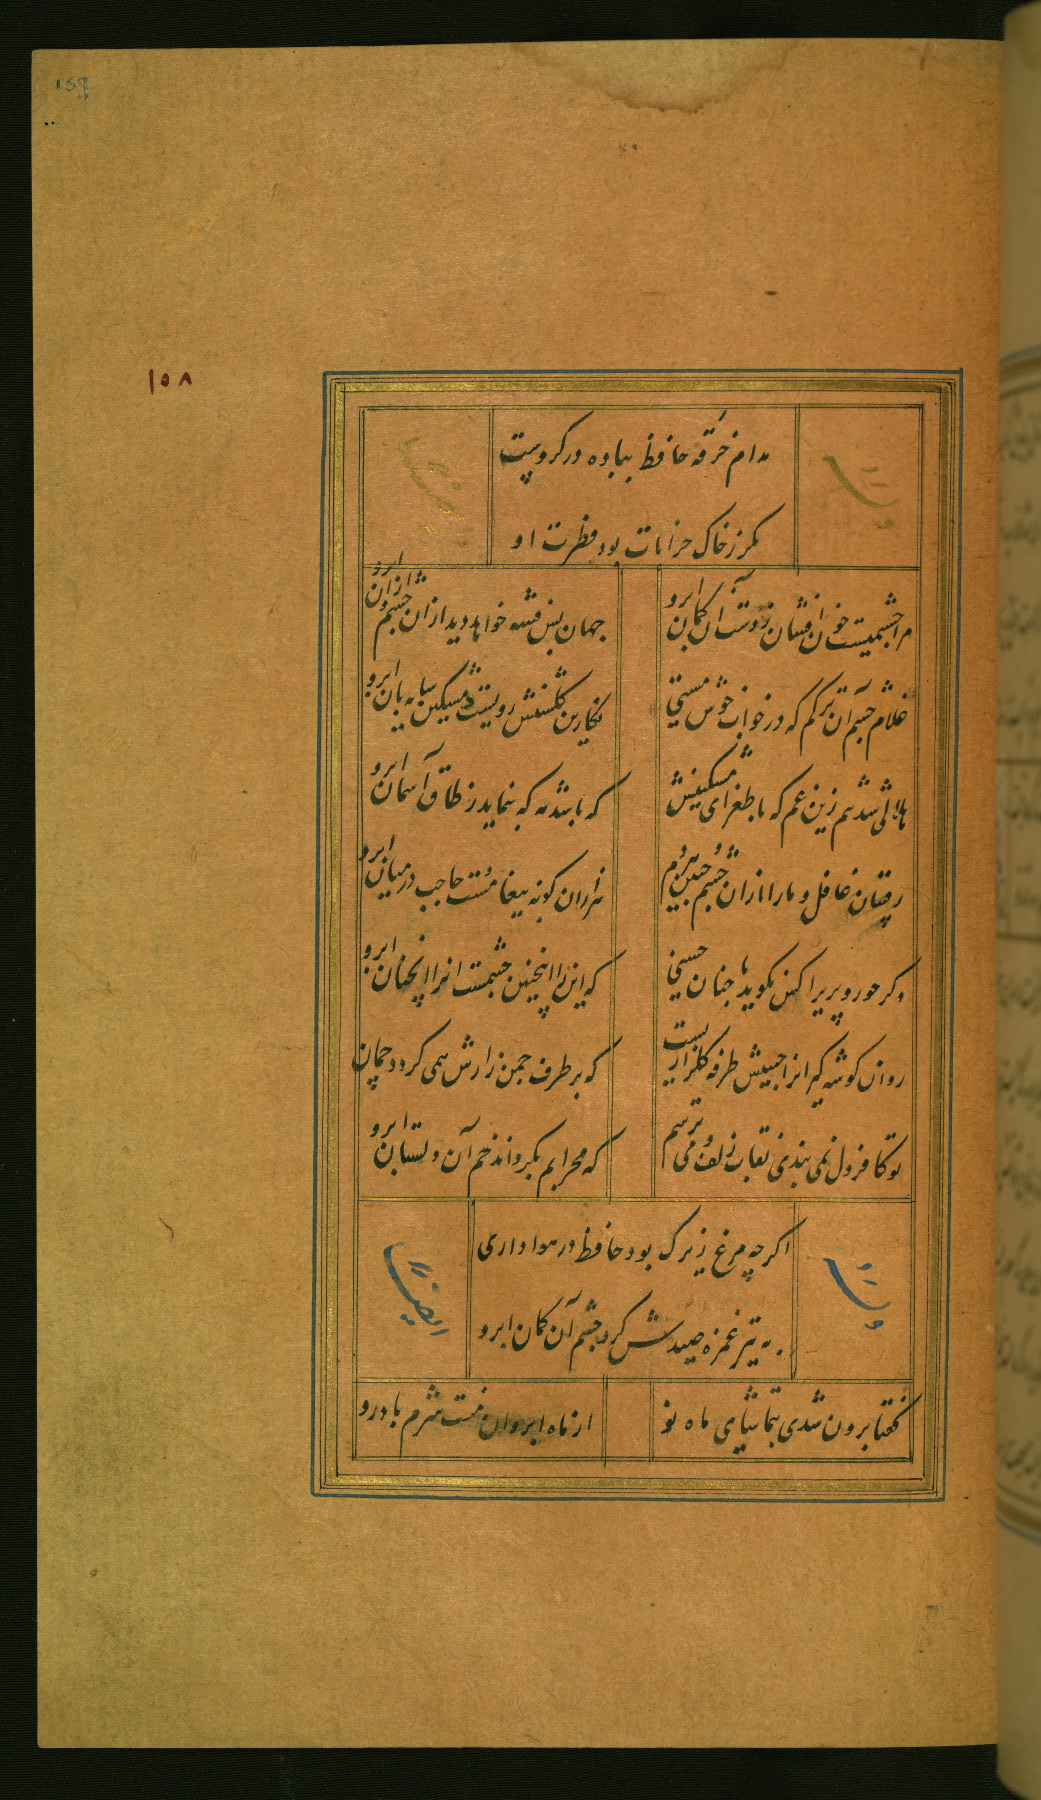 ۱۵۸
مدام خرقه حافظ بباده در کروست
مکر ز خاک خرابات بود فطرت او
مرا چشمیست خون افشان ز دست آن کمان ابرو
جهان بس فتنه خواهد دید از ان چشم و از ان ابرو
غلام چشم آن ترکم که در خواب خوش مستی
نکارین کلشنش رویست و مشکین سایه بان ابرو
هلالی شد تنم زین غم که با طغرای مشکینش
که باشد مه که بنماید ز طاق آسمان ابرو
رقیبان غافل و ما را از ان چشم و جبین هر دم
هزاران کونه پیغامست و حاجب در میان ابرو
دکر حور و پری را کس نکوید با چنان حسنی
که این را اینچنین چشمست انرا انچنان ابرو
روان کوشه کیرانرا جبینش طرفه کلزاریست
که بر طرف چمن زارش همی کردد چمان
تو کافر دل نمی بندی نقاب زلف و می ترسم
که محرابم بکرداند خم آن دلستان ابرو
اکر چه مرغ زیرک بود حافظ در هواداری
به تیر غمزه صیدش کرد چشم آن کمان ابرو
وله
ایضا
کفتا برون شدی بتماشای ماه نو
از ماه ابروان منت شرم باد رو